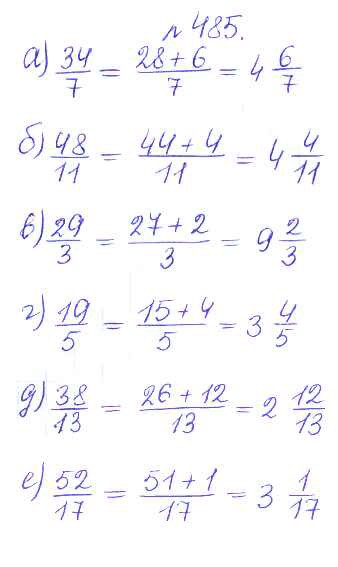 № 485.
а) 34/7 = (28 + 6)/7 = 4 6/7
б) 48/11 = (44 + 4)/11 = 4 4/11
в) 29/3 = (27 + 2)/3 = 9 2/3
г) 19/5 = (15 + 4)/5 = 3 4/5
д) 38/13 = (26 + 12)/13 = 2 12/13
е) 52/17 = (51 + 1)/17 = 3 1/17